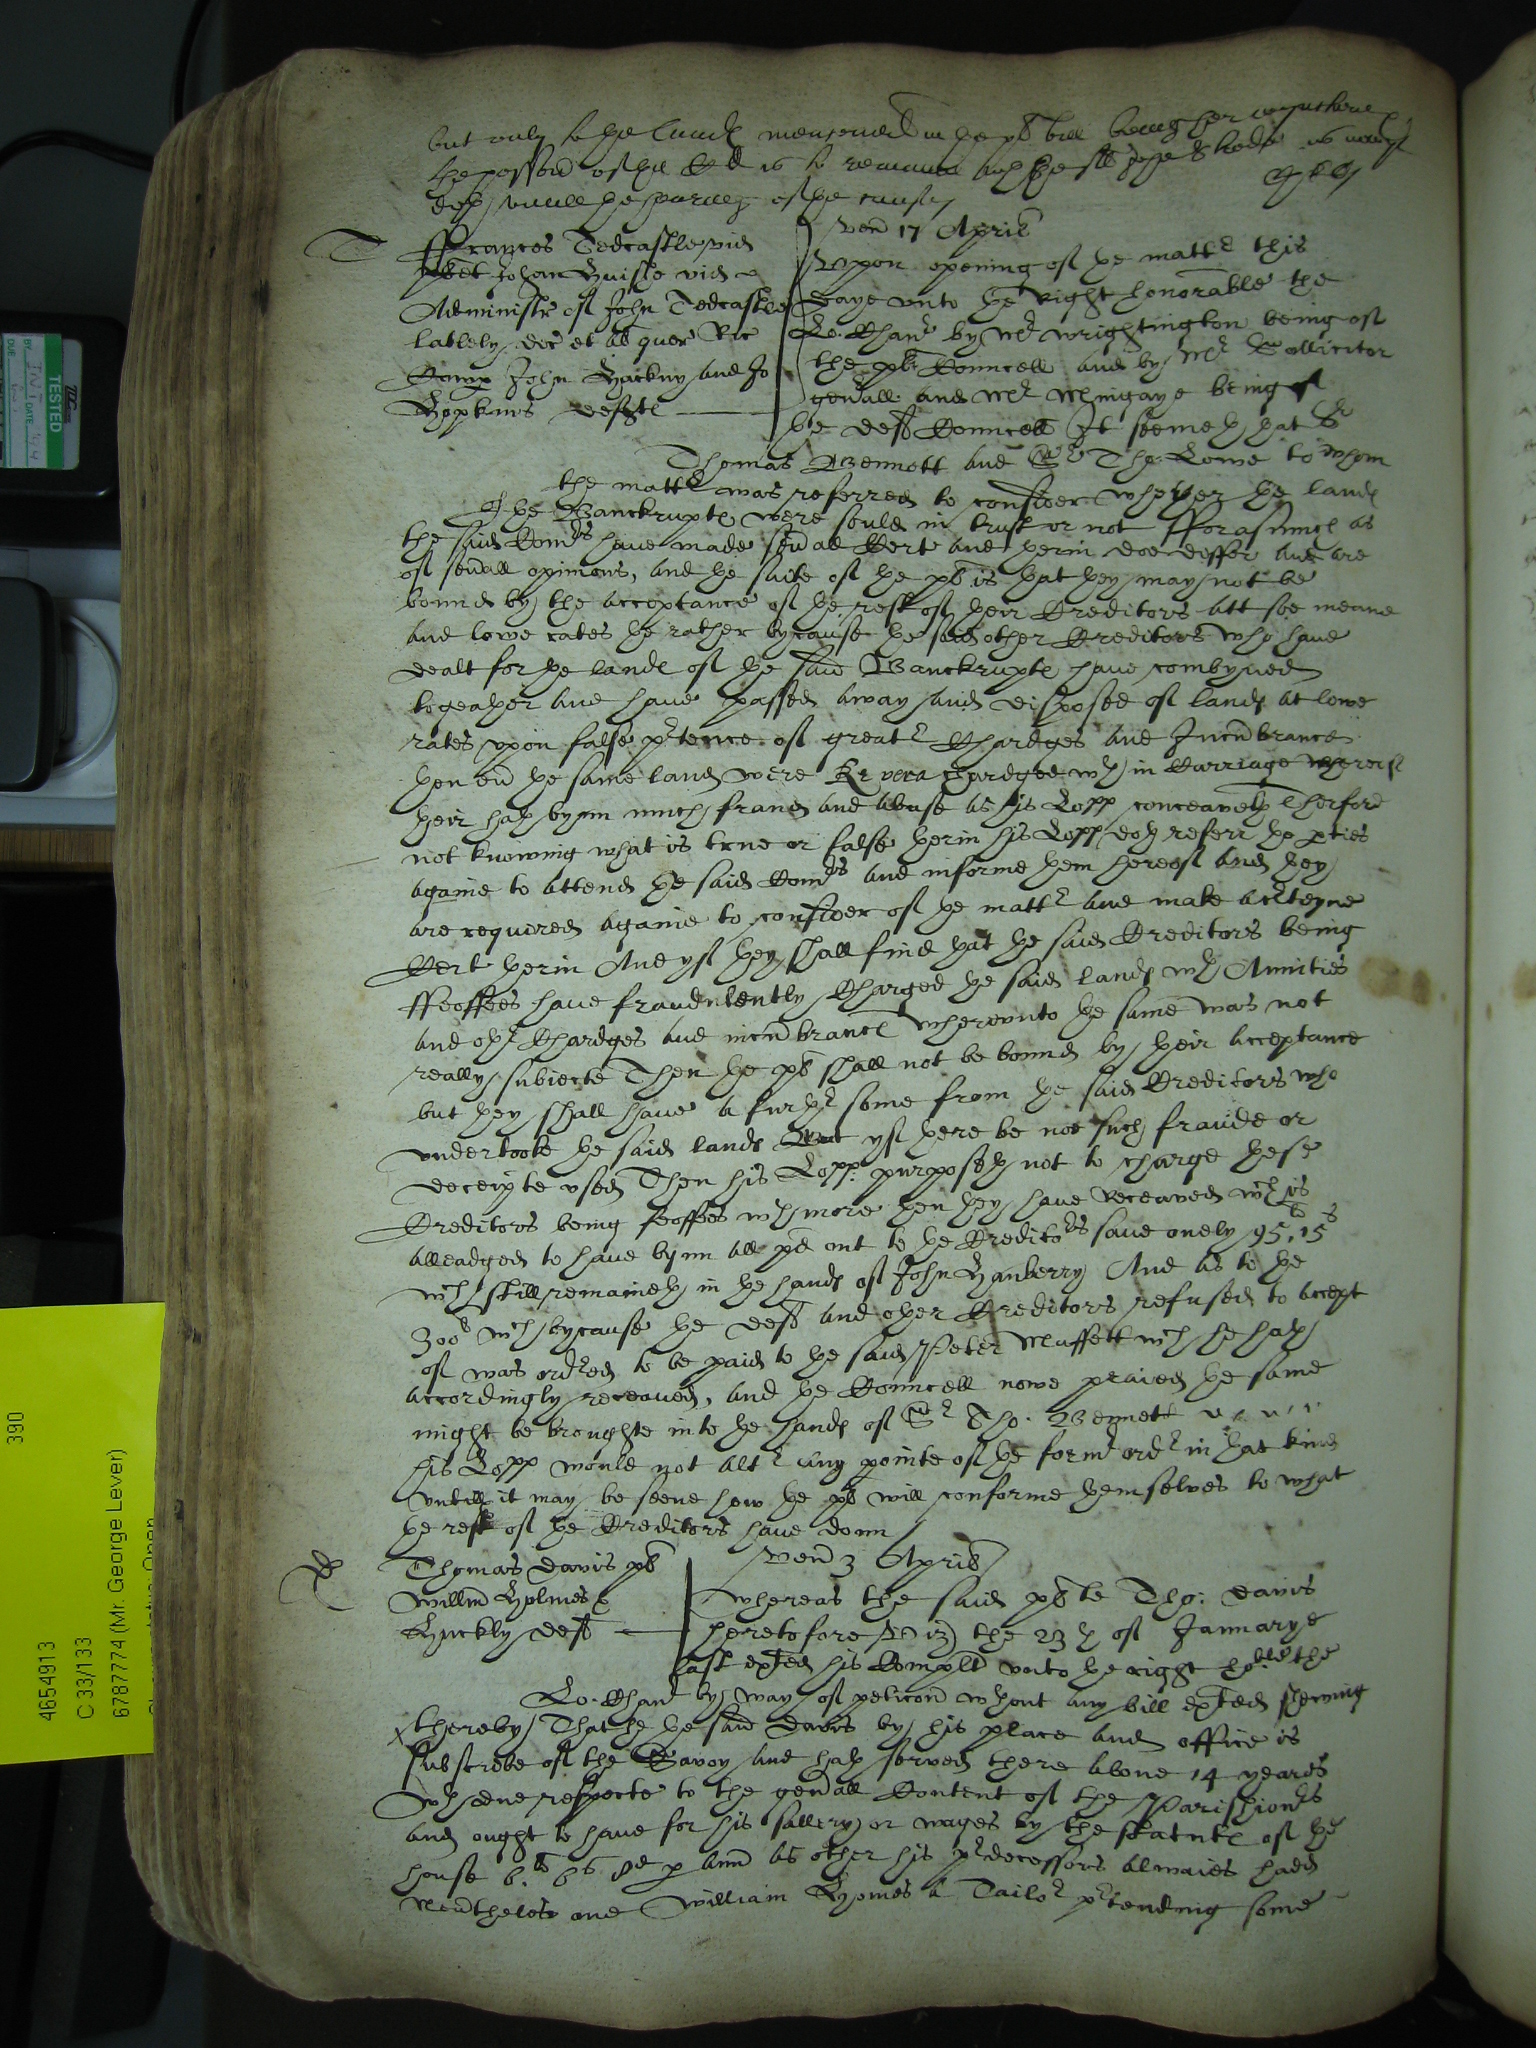 but only to the lands menconed in the pl bill being her ioynture
the possession of the is to remaine
doth untill the hearing of the cause
Ven 17 Aprilis
T
Ffrances Tedcastle vid
et Johan vid
Administr of John Tedcastle
lately dec et al quer Ric
John Hackny and Jo
Hopkins defts
Uppon opening of the mattr this
daye unto the right honorable the
Lo. Chanr by Mr Wrightington being of
the pls Councell and by Mr Sollicitor
gen'all and Mr being of
the defts Councell It seemeth that Sr
Thomas Bennett and Sr Tho: Lowe to whom
the mattr was referred to consider whether the lands
of the Banckrupts were sould in trust or not Fforasmuch as
the said Comrs have made sev'all Cert and therin doe differ and are
of sev'all opinions, and the suite of the pls is that they may not be
bound by the acceptance of the rest of their Creditors att soe meane
and lowe rates the rather bycause the said other Creditors who have
dealt for the lands of the said Banckrupts have combyned
togeather and have passed away and disposed of lands at lowe
rates upon false pr'tence of greatr Chardges and Incumbrances
then the same lands were Re vera chardged wth in
their hath bynn much fraud and abuse as his Lopp conceaveth Therfore
not knowing what is true or false therin his Lopp doth referr the p'ties
againe to attend the said Comrs and informe them thereof and they
are required againe to consider of the mattr and make a c'rteyne
Cert therin And yf they shall find that the said Creditors being
Ffeoffees have fraudulently Charged the said lands wth Annuities
and othr Chardges and incumbrances wherunto the same was not
really subiecte Then the pls shall not be bound by their acceptance
but they shall have a furthr some from the said Creditors who
undertooke the said lands But yf there be not such fraude or
deceipte used Then his Lopp. purposeth not to charge these
Creditors being feoffees wth more then they have Receaved wch is
alleadged to have bynn all pd out to the Creditors save onely 95li 15s
wch still remaineth in the hands of John Hanberry And as to the
300li wch bycause the defts and other Creditors refused to accept
of was ordred to be paid to the said Peter Muffett wch he hath
accordingly receaved, and the Councell nowe praied the same
might be broughte into the hands of Sr Tho. Bennett
his Lopp would not altr any pointe of the formr ordr in that kind
untill it may be seene how the pls will conforme themselves to what
the rest of the Creditors have donn
Ven 3 Aprilis
Thomas Davis pl
Willm Holmes &
Huckly defts
Whereas the said pl Tho: Davis
heretofore (viz) the 23th of Januarye
last exhited his Complt unto the right ho:ble the
Lo. Chanr by way of peticon wthout any bill exhited shewing
thereby That he the said Davis by his place and office is
subscribe of the Savoy and hath served there above 14 yeares
wth due respecte to the gen'all Content of the Parishionrs
and ought to have for his sallery or wages by the statute of the
house 6.li 6s 8d p ann as other his pr'decessors alwaies hadd
Nev'theles one William Holmes a Tailor pr'tending some
TESTED
DATE
DUE
BY
390
4654913
C 33/133
6787774 (Mr. George Lever)